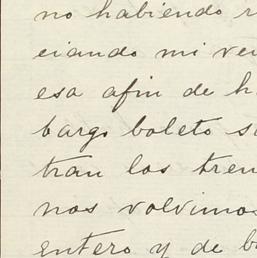 no habiendo r
ciando mi ve
esa afin de h
bargo boleto s
tran los tren
nos volvimos
entero y de b